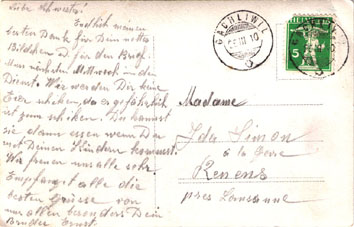 Liebe Schwester!
Endlich meinen
besten Dank für Dein nettes
Bildchen D. für den Brief.
Am nächsten Mittwoch in den
Dienst. Wir werden Dir keine
Eier schicken, da es gefährlich
ist zum schicken. Du kannst
sie dann essen wenn Du
mit Deinen Kindern kommst.
Wir freuen uns alle sehr.
Empfanget alle die
besten Grüsse von
uns allen besonders Dein
Bruder Ernst.
GÄCHLIWIL
III 10
HELVETIA
5
Madame
Ida Simon
à la Gare
Renens
près Lausanne